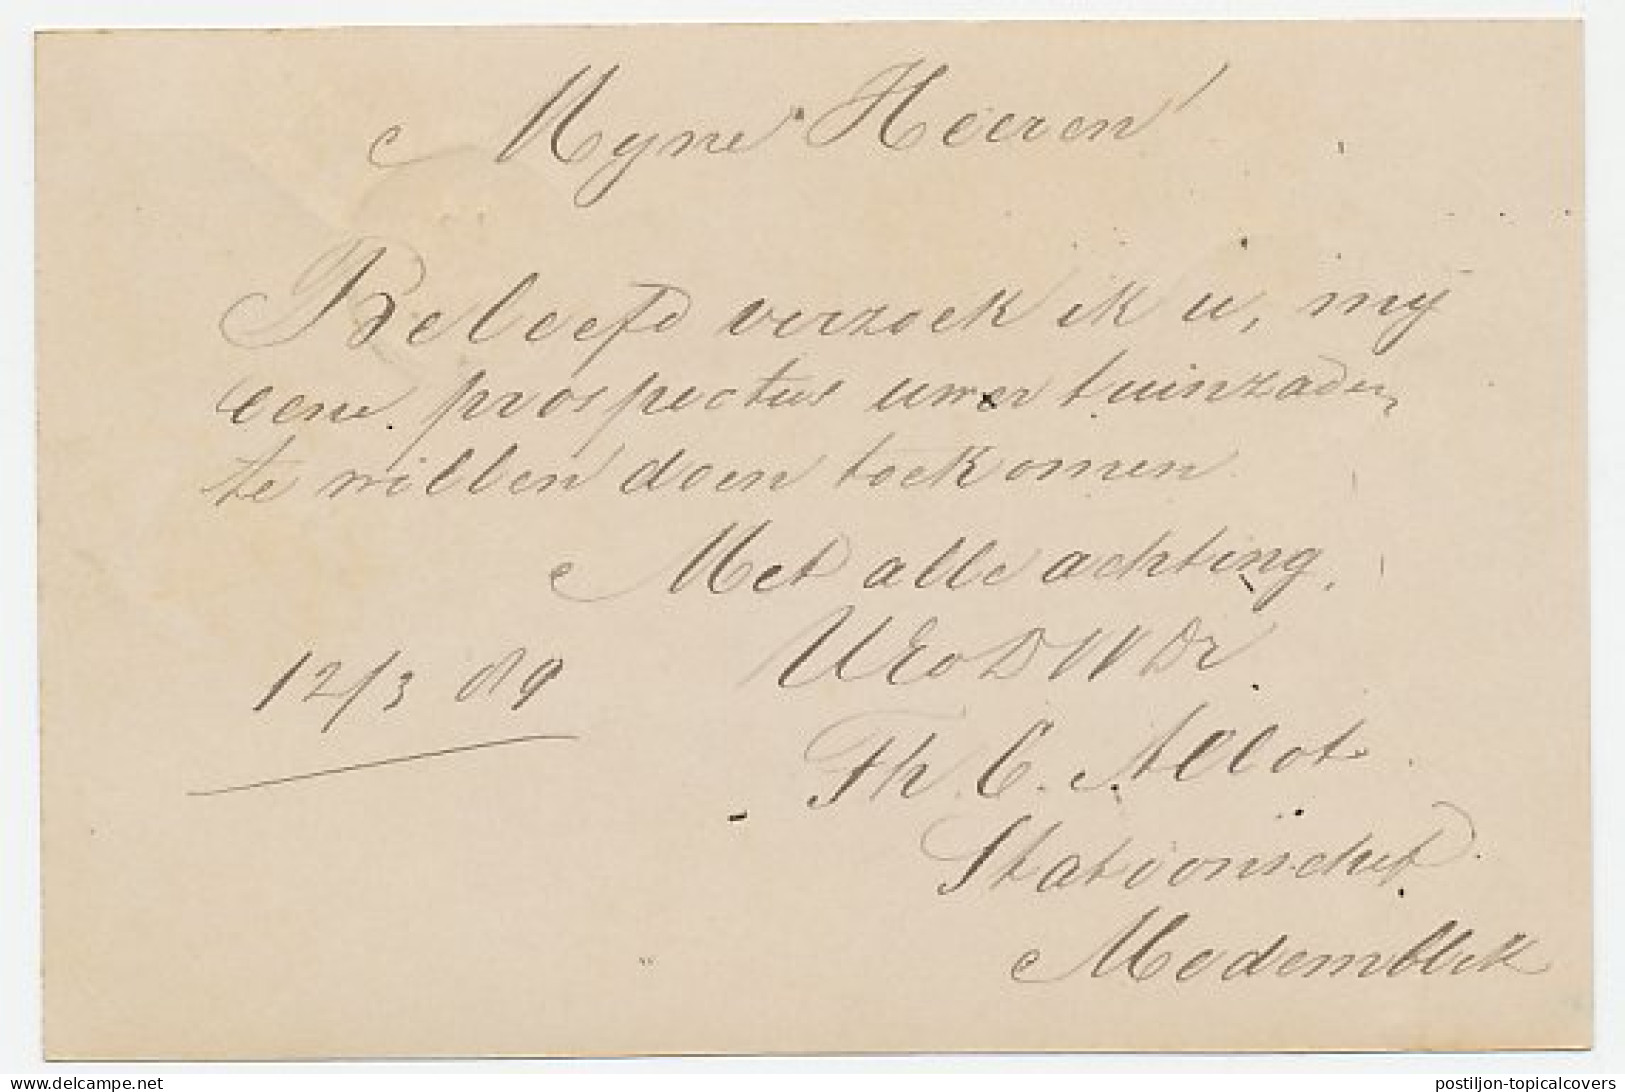 Myne Heeren
Beleefd verzoek ik u, mij
eene prospectus uwer tuinzaden
te willen doen toekomen
Met alle achting,
UEd DW Dr
12/3 89
Th. C.
Stationschef
Medemblik
delcampe.net
postiljon-topicalcovers